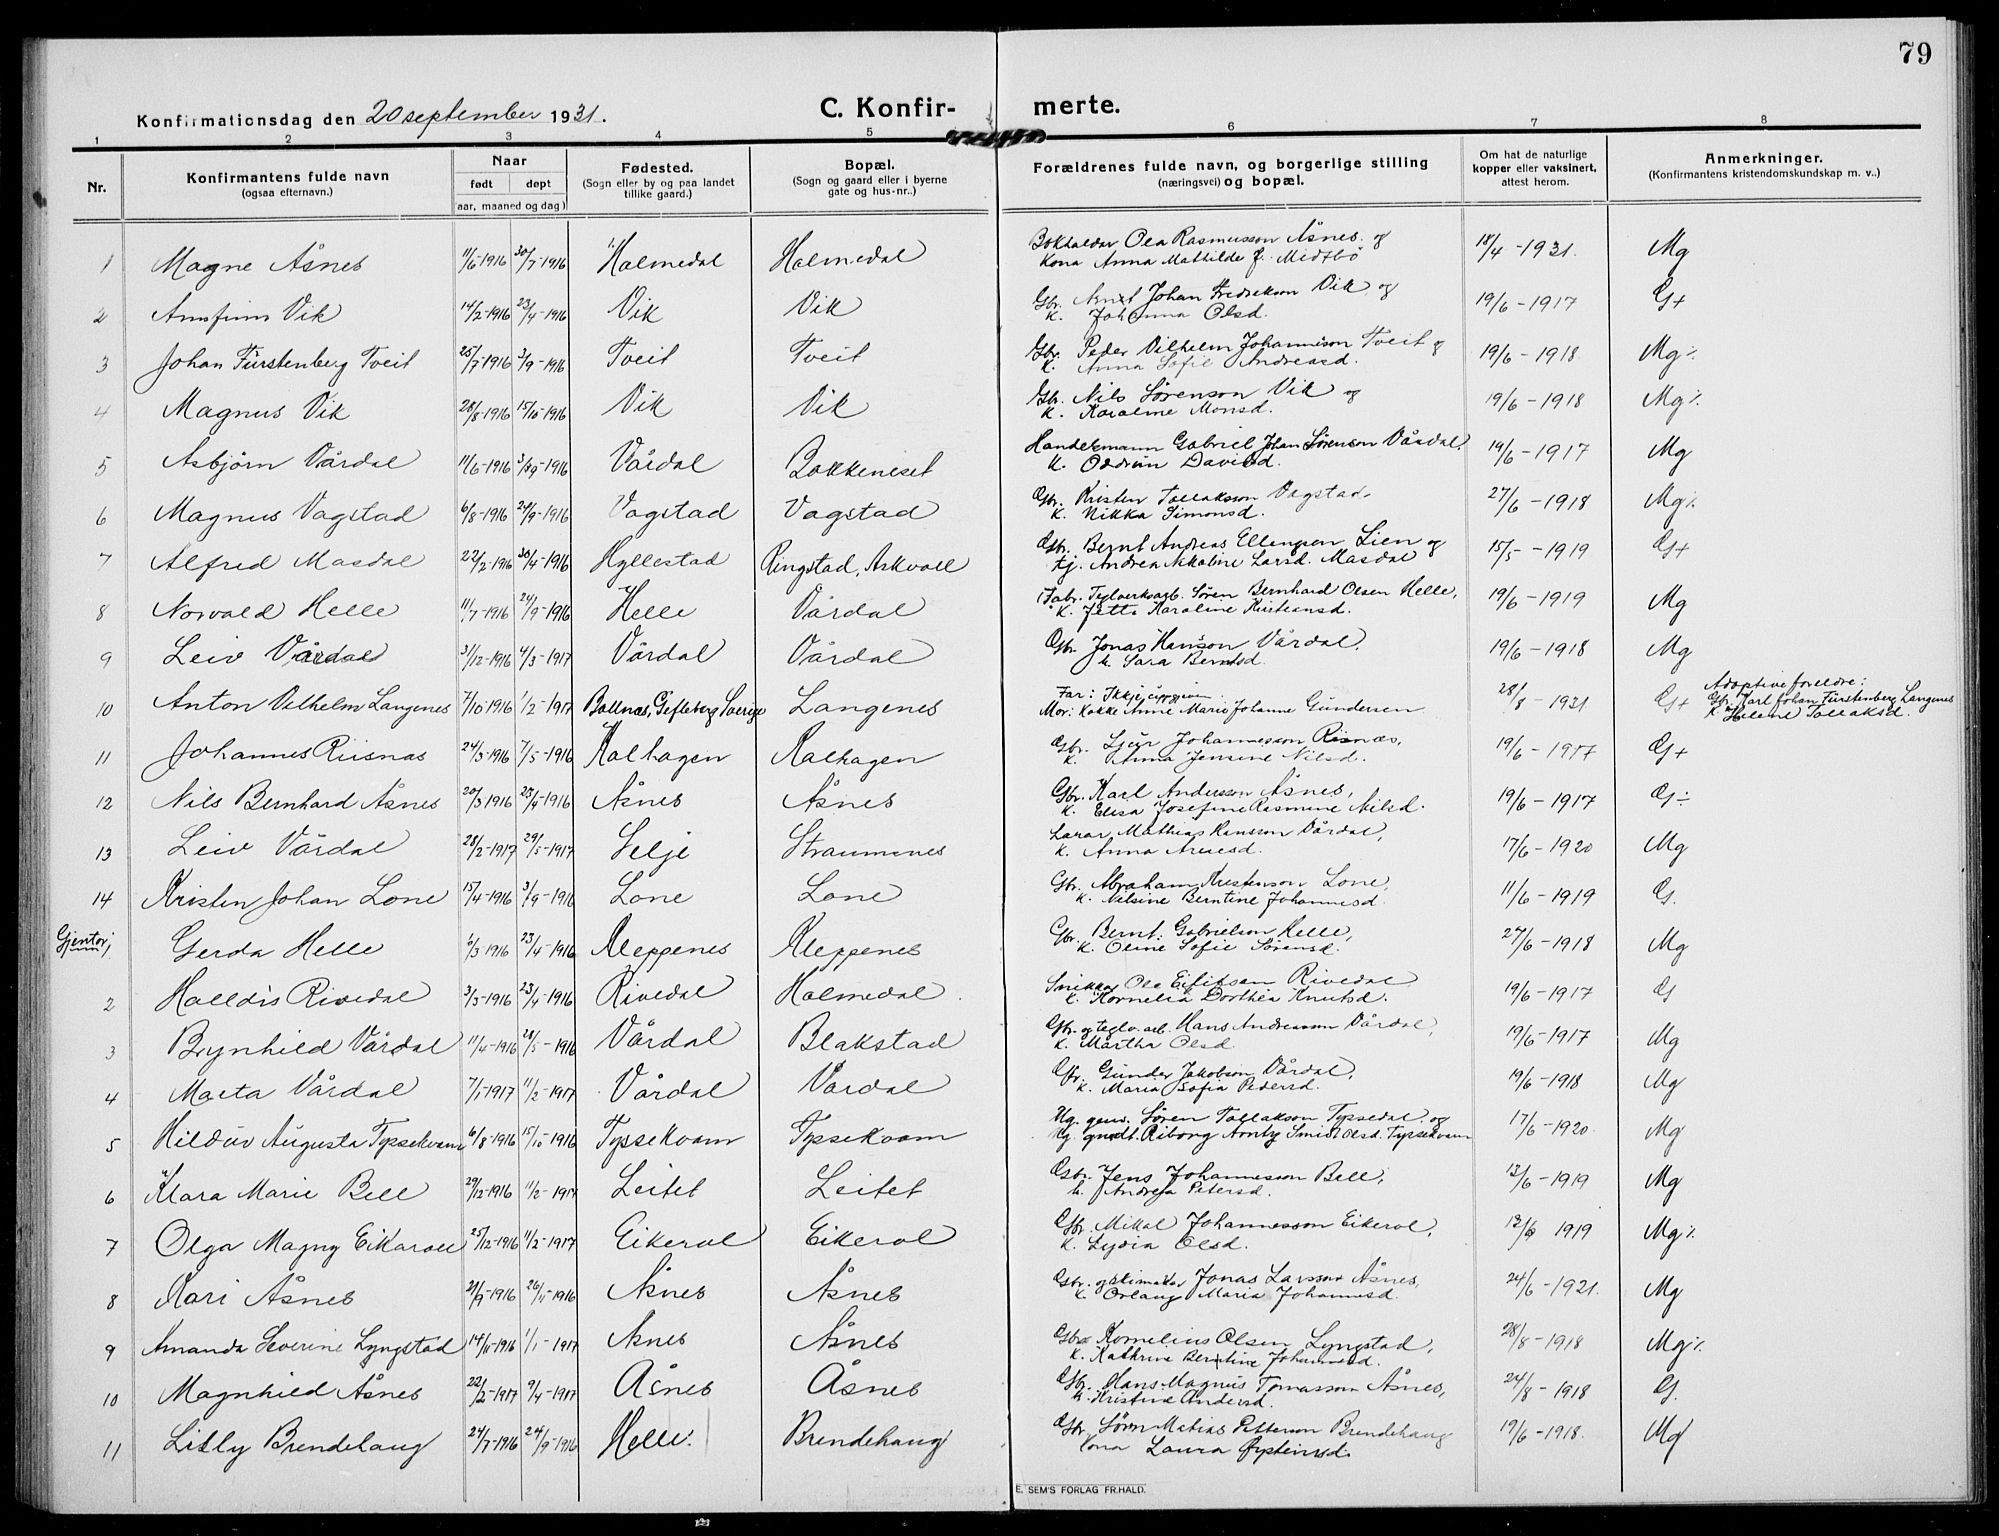 79
Konfirmationsdag den 20 september 1931.
C. Konfir- merte.
1 2 3 4 5 6 7 8
Nr.
Konfirmantens fulde navn
(ogsaa efternavn.)
Naar
født døpt
(aar, maaned og dag)
Fødested.
(Sogn eller by og paa landet
tillike gaard.)
Bopæl.
(Sogn og gaard eller i byerne
gate og hus-nr.)
Forældrenes fulde navn, og borgerlige stilling
(næringsvei) og bopæl.
Om hat de naturlige
kopper eller vaksinert,
attest herom.
Anmerkninger.
(Konfirmantens kristendomskundskap m. v.)
1 Magne Åsnes 11/6-1916 30/7-1916 Holmedal Holmedal Bokhaldar Ola Rasmusson Åsnes og 18/4-1931. Mg
Kona Anna Mathilde f. Midtbö
2 Arnfinn Vik 14/2-1916 23/4-1916 Vik Vik Gbr. Arnt Johan Fredrekson Vik og 19/6-1917 G+
K. Johanna Olsd.
3 Johan Fürstenberg Tveit 25/7-1916 3/9-1916 Tveit Tveit Gbr. Peder Vilhelm Johanneson Tveit og 19/6-1918 Mg%
K. Anna Sofie Andreasd.
4 Magnus Vik 28/8-1916 15/10-1916 Vik Vik Gbr. Nils Sørenson Vik og 19/6-1918 Mg%
K. Karoline Monsd.
5 Asbjörn Vårdal 11/6-1916 3/9-1916 Vårdal Bakkeneset Handelsmann Gabriel Johan Sørenson Vårdal, 19/6-1917 Mg
K. Oddrun Davidsd.
6 Magnus Vagstad 6/8-1916 24/9-1916 Vagstad Vagstad Gbr. Kristen Tollakson Vagstad 27/6-1918 Mg%
K. Nikka Simonsd.
7 Alfred Masdal 22/2-1916 30/4-1916 Hyllestad Ringstad, Askvoll Gbr. Bernt Andreas Ellengsen Lien og 15/5-1919 G+
tj. Andrea Nikoline Larsd. Masdal
8 Norvald Helle 11/7-1916 24/9-1916 Helle Vårdal Fabr. Teglverksarb. Søren Bernhard Olsen Helle, 19/6-1919 Mg
K. Jette Karoline Kristiansd.
9 Leiv Vårdal 31/12-1916 4/3-1917 Vårdal Vårdal Gbr. Jonas Hansson Vårdal, 19/6-1918 Mg
k. Sara Berntsd.
10 Anton Vilhelm Langenes 7/10-1916 1/2-1917 Bollnäs, Gefleborg Sverige Langenes Far: Ikkje uppgjeven. 28/8-1931 G+ Adoptivforeldre:
Mor: Kokke Anne Marie Johanne Gundersen Gbr. Karl Johan Fürstenberg Langenes
K. Helene Tollaksd.
11 Johannes Riisnas 24/3-1916 7/5-1916 Kalhagen Kalhagen Gbr. Sjur Johannesson Risnæs, 19/6-1917 G+
K. Anna Jensine Nilsd.
12 Nils Bernhard Åsnes 20/3-1916 23/4-1916 Åsnes Åsnes Gbr. Karl Andersson Åsnes, 19/6-1917 G÷
K. Elisa Josefine Rasmine Nilsd.
13 Leiv Vårdal 28/2-1917 29/5-1917 Selje Straumenes Lærar Mathias Hansson Vårdal, 17/6-1920 Mg
K. Anna Arnesd.
14 Kristen Johan Lone 15/4-1916 3/9-1916 Lone Lone Gbr. Abraham Kristenson Lone, 11/6-1919 G.
K. Nilsine Berntine Johannesd.
Gjentor; Gerda Helle 1/3 1916 23/4-1916 Kleppenes Kleppenes Gbr. Bernt Gabrielson Helle, 27/6-1918 Mg
K. Oline Sofie Sørensd.
2 Halldis Rivedal 3/3-1916 23/4 1916 Rivedal Holmedal Snikkar Ole Eilifsen Rivedal 19/6-1917 G
K. Kornelia Dorthea Knutsd.
3 Brynhild Vårdal 11/4-1916 28/5-1916 Vårdal Blakstad Gbr. og teglv. arb. Hans Andreasson Vårdal, 19/6-1917 Mg
K. Martha Olsd.
4 Marta Vårdal 7/1-1917 11/2-1917 Vårdal Vårdal Gbr. Gunder Jakobson Vårdal, 19/6-1918 Mg
K. Maria Sofia Pedersd.
5 Hildur Augusta Tyssekvam 6/8-1916 15/10-1916 Tyssekvam Tyssekvam Ug. gens. Søren Tollakson Tyssedal og 17/6-1920 Mg
Ug. Riborg Arntz Smidt Olsd. Tyssekvam
6 Klara Marie Bell 29/12-1916 11/2-1917 Leitet Leitet Gbr. Jens Johannesson Bell, 13/6-1919 Mg
k. Andrea Petersd.
7 Olga Magny Eikaroll 25/12-1916 11/2-1917 Eikerol Eikerol Gbr. Mikal Johannesson Eikerol, 12/6 1919 Mg%
K. Lydia Olsd.
8 Kari Åsnes 21/9-1916 26/11-1916 Åsnes Åsnes Gbr. og skimaker Jonas Larsson Åsnes, 24/6-1921. Mg
K. Orlaug Maria Johannesd.
9 Amanda Severine Lyngstad 14/11-1916 1/1-1917 Åsnes Åsnes Gbr. Kornelius Olsen Lyngstad, 28/8-1918 Mg%
K. Kathrine Berntine Johannesd.
10 Magnhild Åsnes 22/2-1917 9/4-1917 Åsnes Åsnes Gbr. Hans Magnus Tomasson Åsnes, 24/8-1918 G.
k. Kristine Andersd.
11 Lilly Brendehaug 24/7-1916 24/9-1916 Helle. Brendehaug Gbr. Søren Matias Petterson Brendehaug 19/6-1918. Mg
Kona Laura Øysteinsd.
E. SEM'S FORLAG FR.HALD.